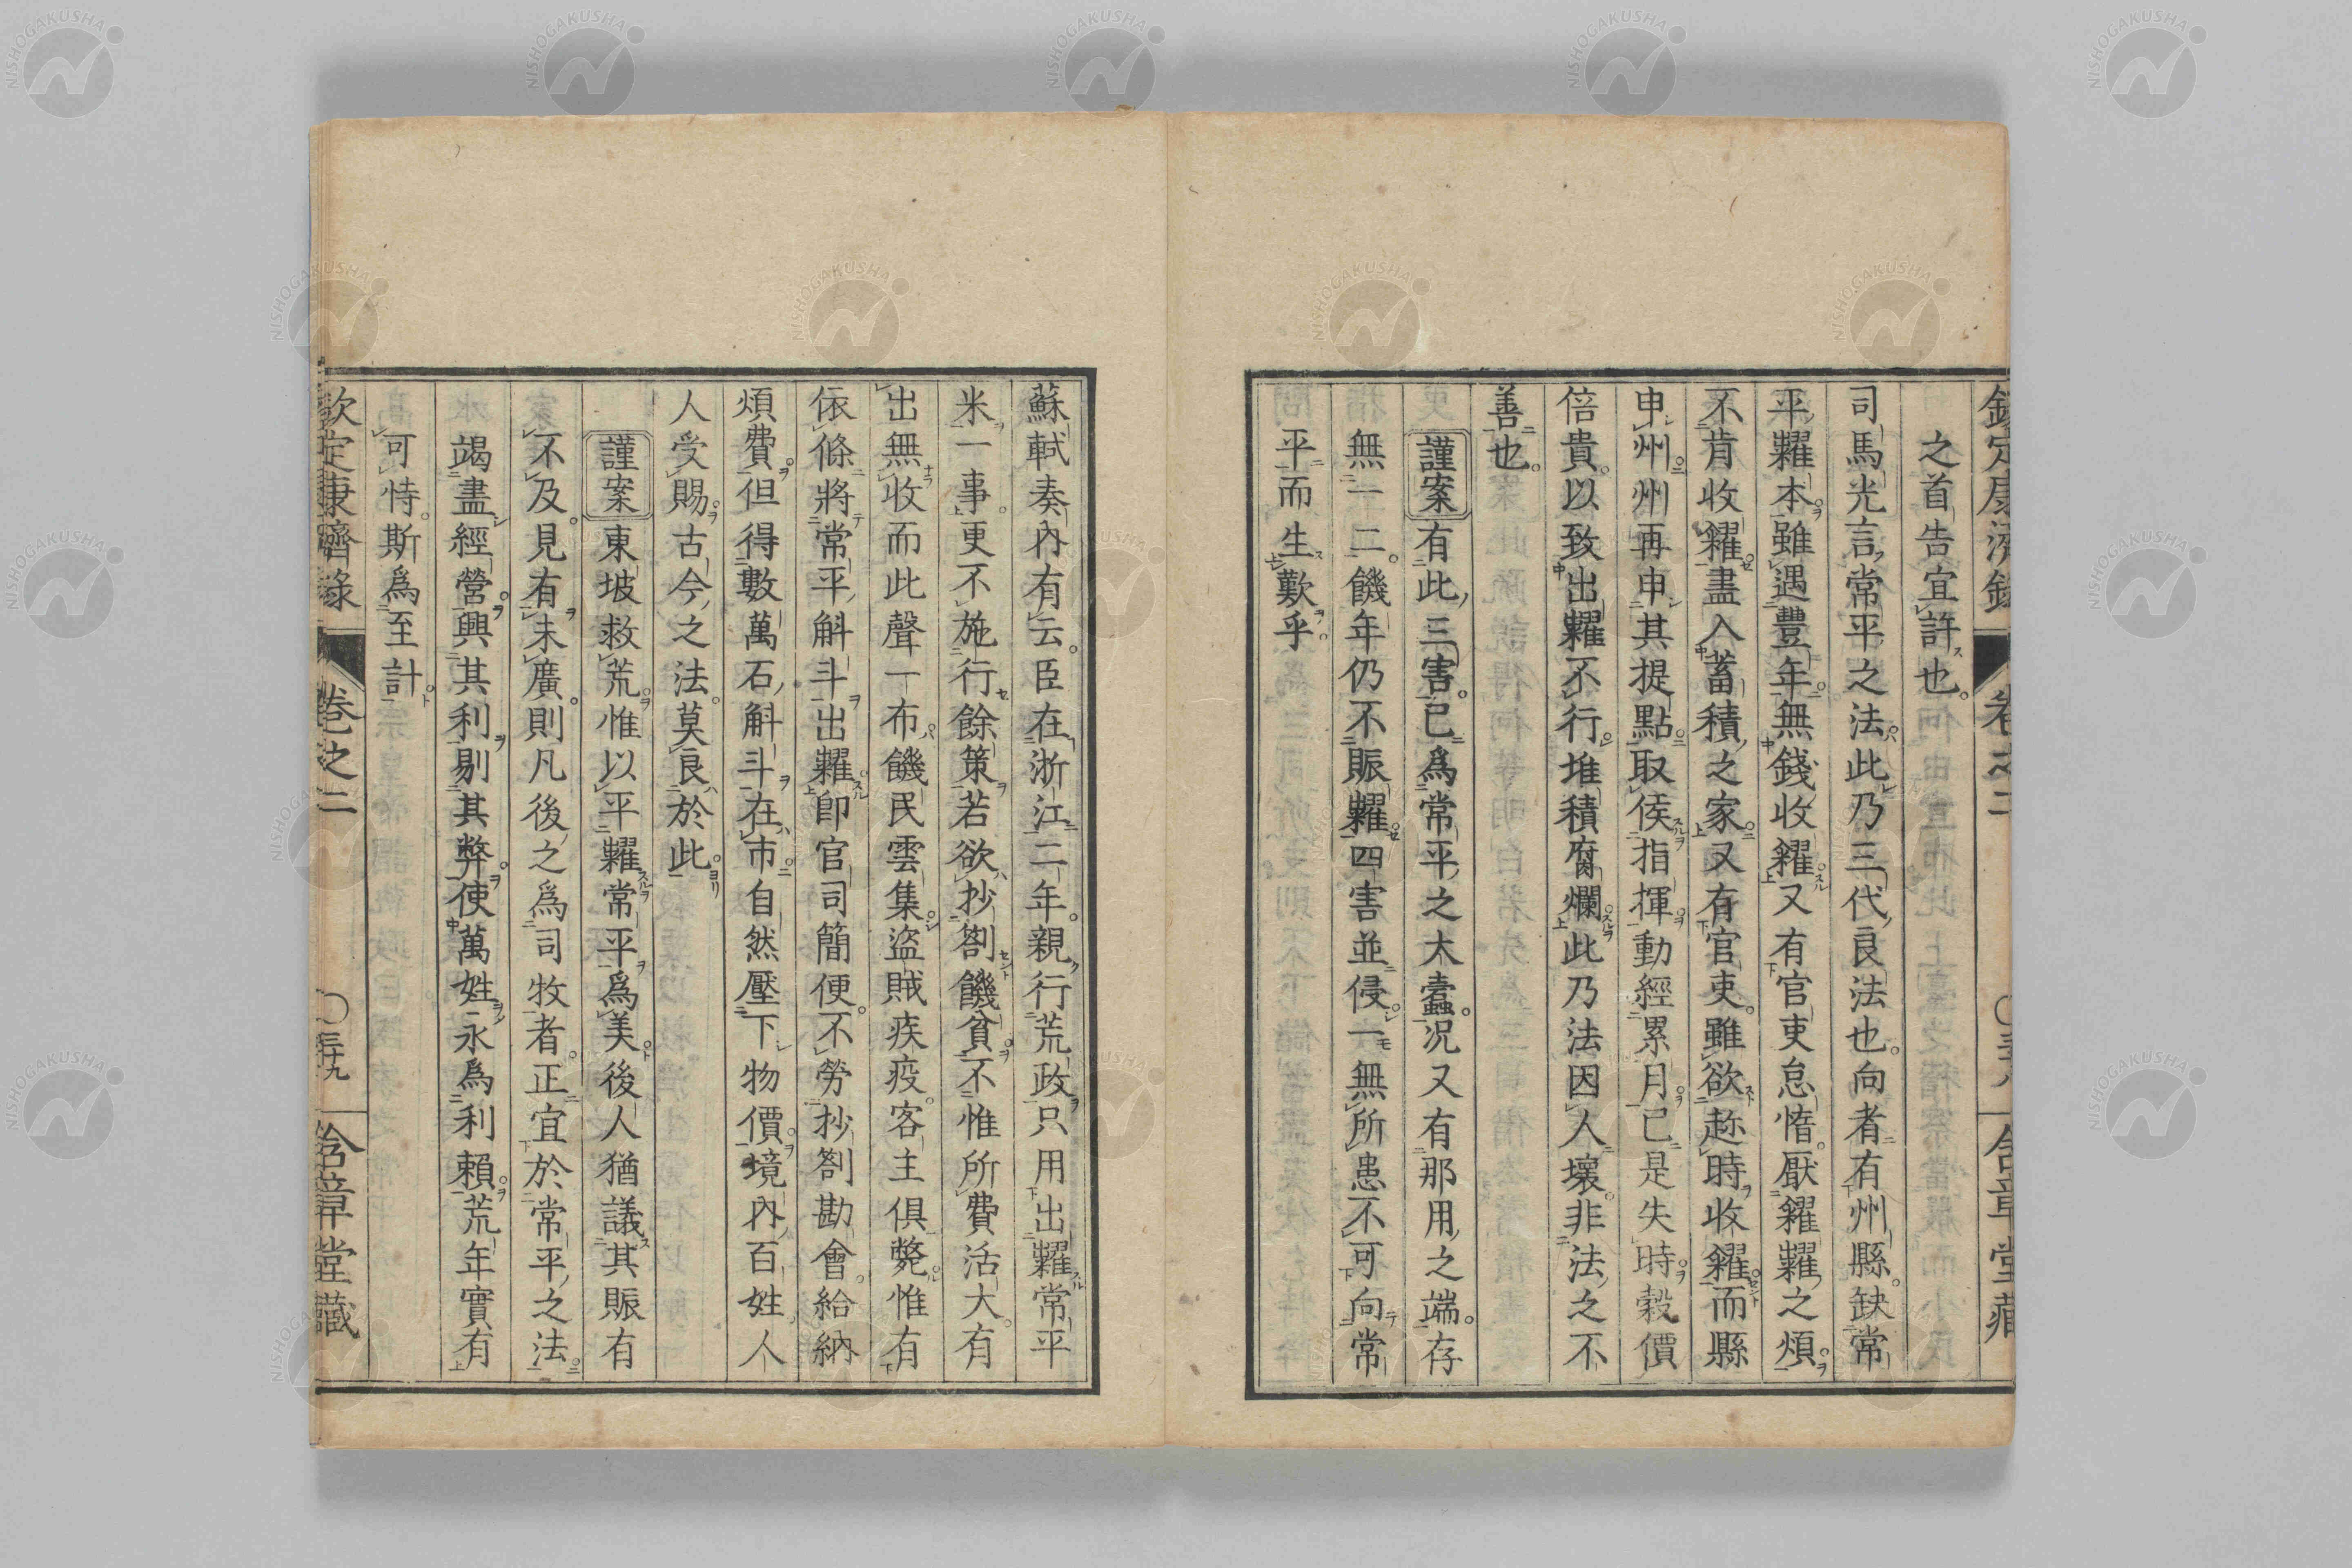 欽定康濟錄 卷之二 〇三十八 含章堂藏
之首告宜許也
司馬光言常平之法此乃三代良法也向者有州縣缺常
平糶本雖遇豐年無錢收糴又有官吏怠惰厭糴糶之煩
不肯收糴盡入蓄積之家又有官吏雖欲趂時收糴而縣
申州州再申其提點取侯指揮動經累月已是失時穀價
倍貴以致出糶不行堆積腐爛此乃法因人壞非法之不
善也
謹案有此三害已爲常平之大蠹况又有那用之端存
無一二饑年仍不賑糶四害並侵一無所患不可向常
平而生歎乎
蘇軾奏內有云臣在浙江二年親行荒政只用出糶常平
米一事更不施行餘策若欲抄劄饑貧不惟所費活大有
出無收而此聲一布饑民雲集盜賊疾疫客主俱斃惟有
依條將常平斛斗出糶卽官司簡便不勞抄劄勘會給納
煩費但得數萬石斛斗在市自然壓下物價境內百姓人
人受賜古今之法莫良於此
謹案東坡救荒惟以平糶常平爲美後人猶議其賑有
不及見有未廣則凡後之爲司牧者正宜於常平之法
竭盡經營興其利剔其弊使萬姓永爲利賴荒年實有
可恃斯爲至計
欽定康濟錄 卷之二 〇三十九 含章堂藏
NISHOGAKUSHA